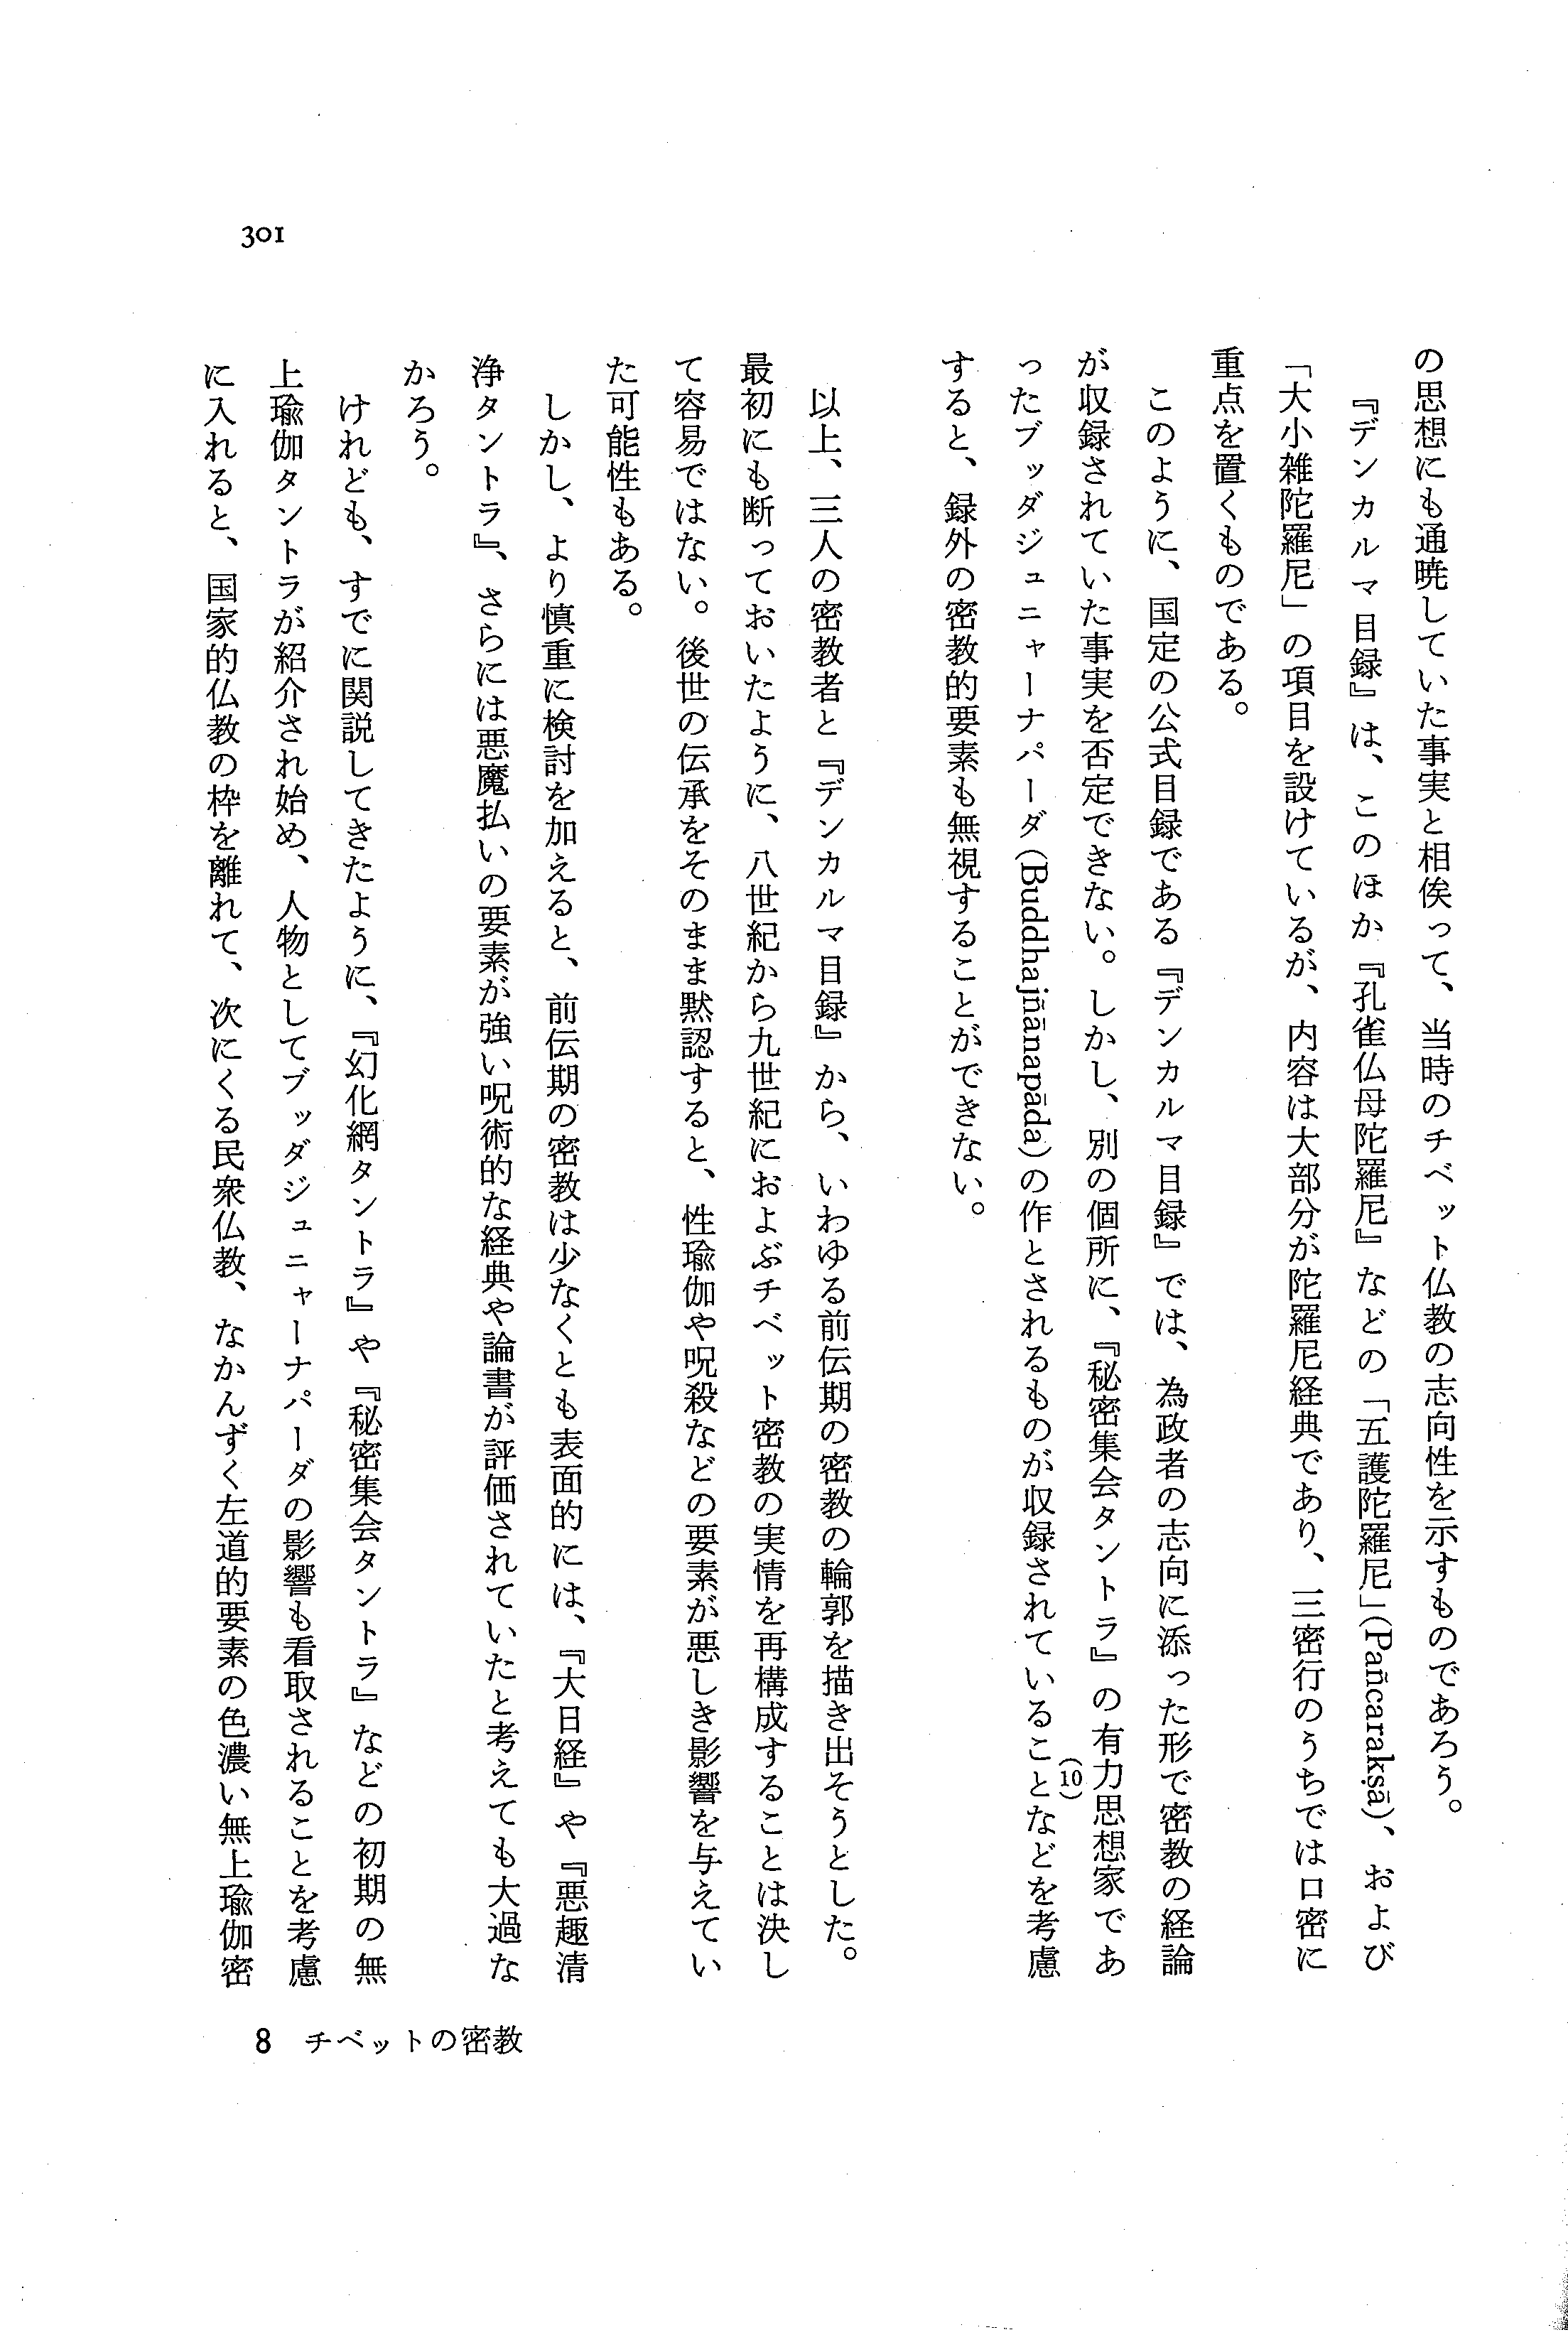 301
の思想にも通暁していた事実と相俟って、当時のチベット仏教の志向性を示すものであろう。
『デンカルマ目録』は、このほか『孔雀仏母陀羅尼』などの「五護陀羅尼」(Pañcarakṣā)、および
「大小雑陀羅尼」の項目を設けているが、内容は大部分が陀羅尼経典であり、三密行のうちでは口密に
重点を置くものである。
このように、国定の公式目録である『デンカルマ目録』では、為政者の志向に添った形で密教の経論
が収録されていた事実を否定できない。しかし、別の個所に、『秘密集会タントラ』の有力思想家であ
ったブッダジュニャーナパーダ(Buddhajñānapāda)の作とされるものが収録されていること(10)などを考慮
すると、録外の密教的要素も無視することができない。
以上、三人の密教者と『デンカルマ目録』から、いわゆる前伝期の密教の輪郭を描き出そうとした。
最初にも断っておいたように、八世紀から九世紀におよぶチベット密教の実情を再構成することは決し
て容易ではない。後世の伝承をそのまま黙認すると、性瑜伽や呪殺などの要素が悪しき影響を与えてい
た可能性もある。
しかし、より慎重に検討を加えると、前伝期の密教は少なくとも表面的には、『大日経』や『悪趣清
浄タントラ』、さらには悪魔払いの要素が強い呪術的な経典や論書が評価されていたと考えても大過な
かろう。
けれども、すでに関説してきたように、『幻化網タントラ』や『秘密集会タントラ』などの初期の無
上瑜伽タントラが紹介され始め、人物としてブッダジュニャーナパーダの影響も看取されることを考慮
に入れると、国家的仏教の枠を離れて、次にくる民衆仏教、なかんずく左道的要素の色濃い無上瑜伽密
8 チベットの密教